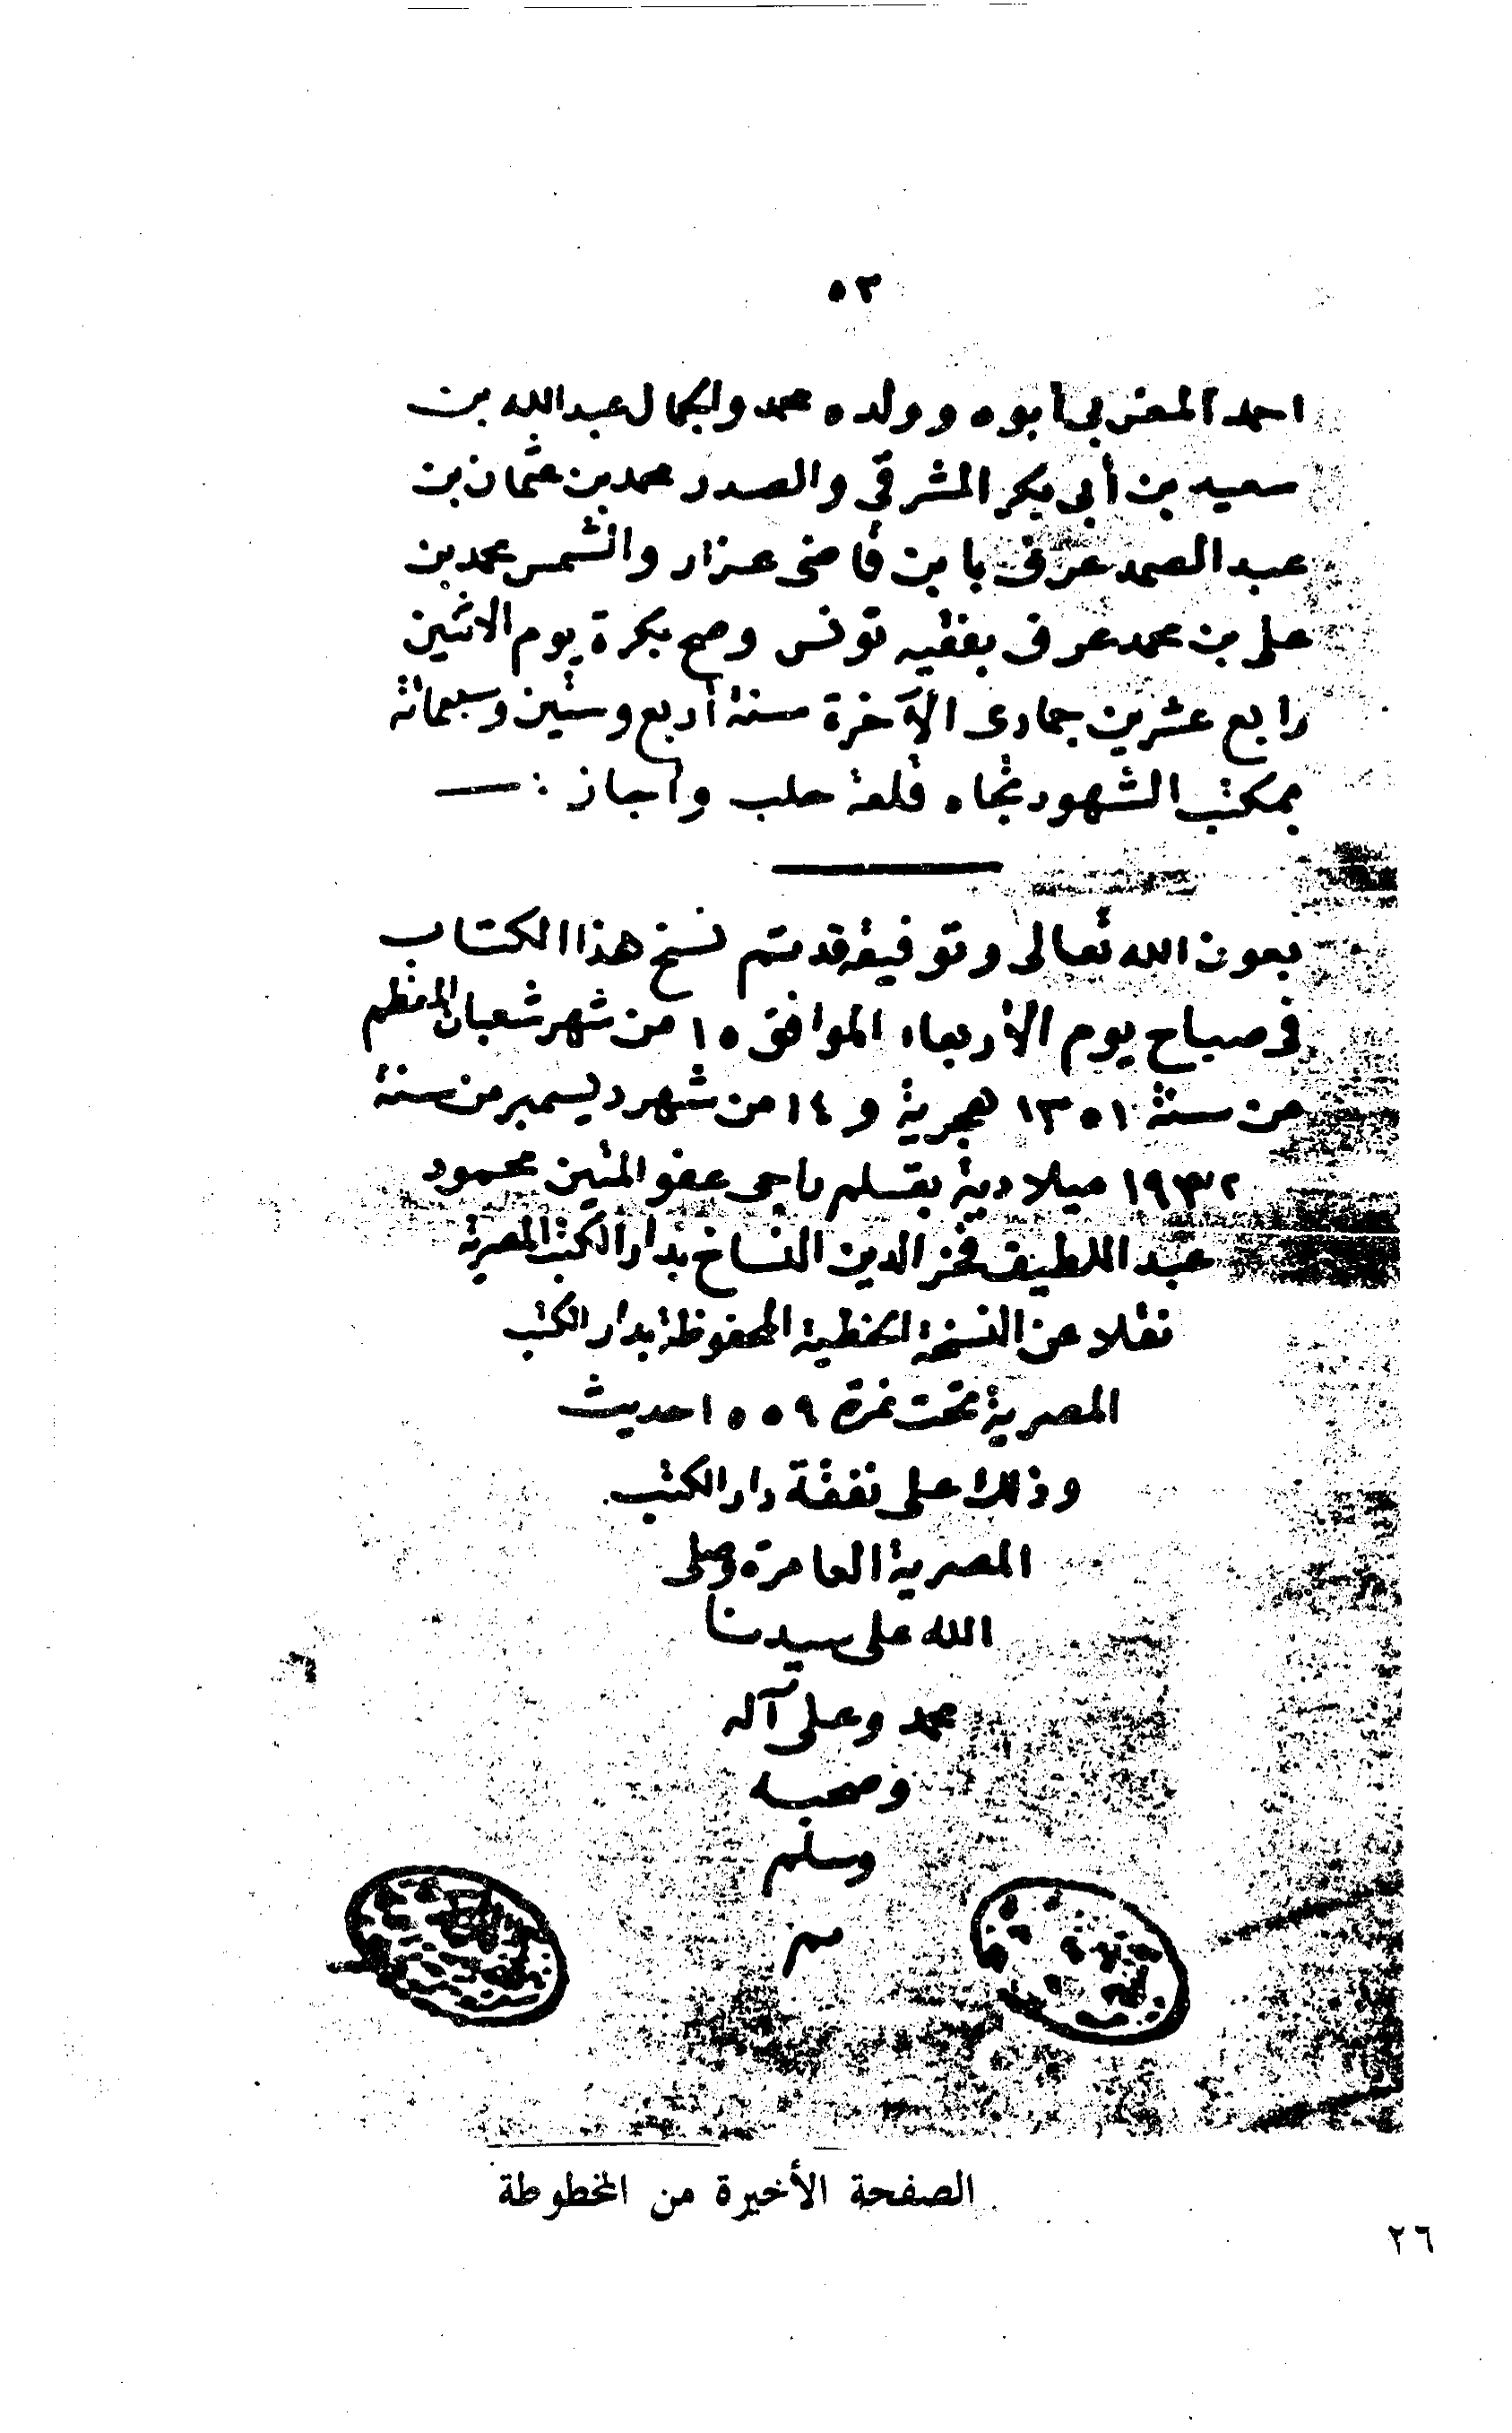 ٥٣
احمد المغربي أبوه وولده محمد والجمال عبد الله بن
سعيد بن أبي بكر المشرقي والصدر محمد بن عثمان بن
عبد الصمد عرف بابن قاضى عزاز والشمس محمد بن
على بن محمد عرف بفقيه تونس وصح بكرة يوم الاثنين
رابع عشرين جمادى الآخرة سنة أربع وستين وسبعمائة
بمكتب الشهود تجاه قلعة حلب وأجاز :ـــ
بعون الله تعالى وتوفيقه قد تم نسخ هذا الكتاب
فى صباح يوم الأربعاء الموافق ١٥ من شهر شعبان المعظم
من سنة ١٣٥١ هجرية و ١٤ من شهر ديسمبر من سنة
١٩٣٢ ميلادية بقلم راجى عفو المتين محمود
عبد اللطيف فخر الدين النساخ بدار الكتب المصرية
نقلا عن النسخة الخطية المحفوظة بدار الكتب
المصرية تحت نمرة ١٥٥٩ حديث
وذلك على نفقة دار الكتب
المصرية العامرة وصلى
الله على سيدنا
محمد وعلى آله
وصحبه
وسلم
الصفحة الأخيرة من المخطوطة
٢٦